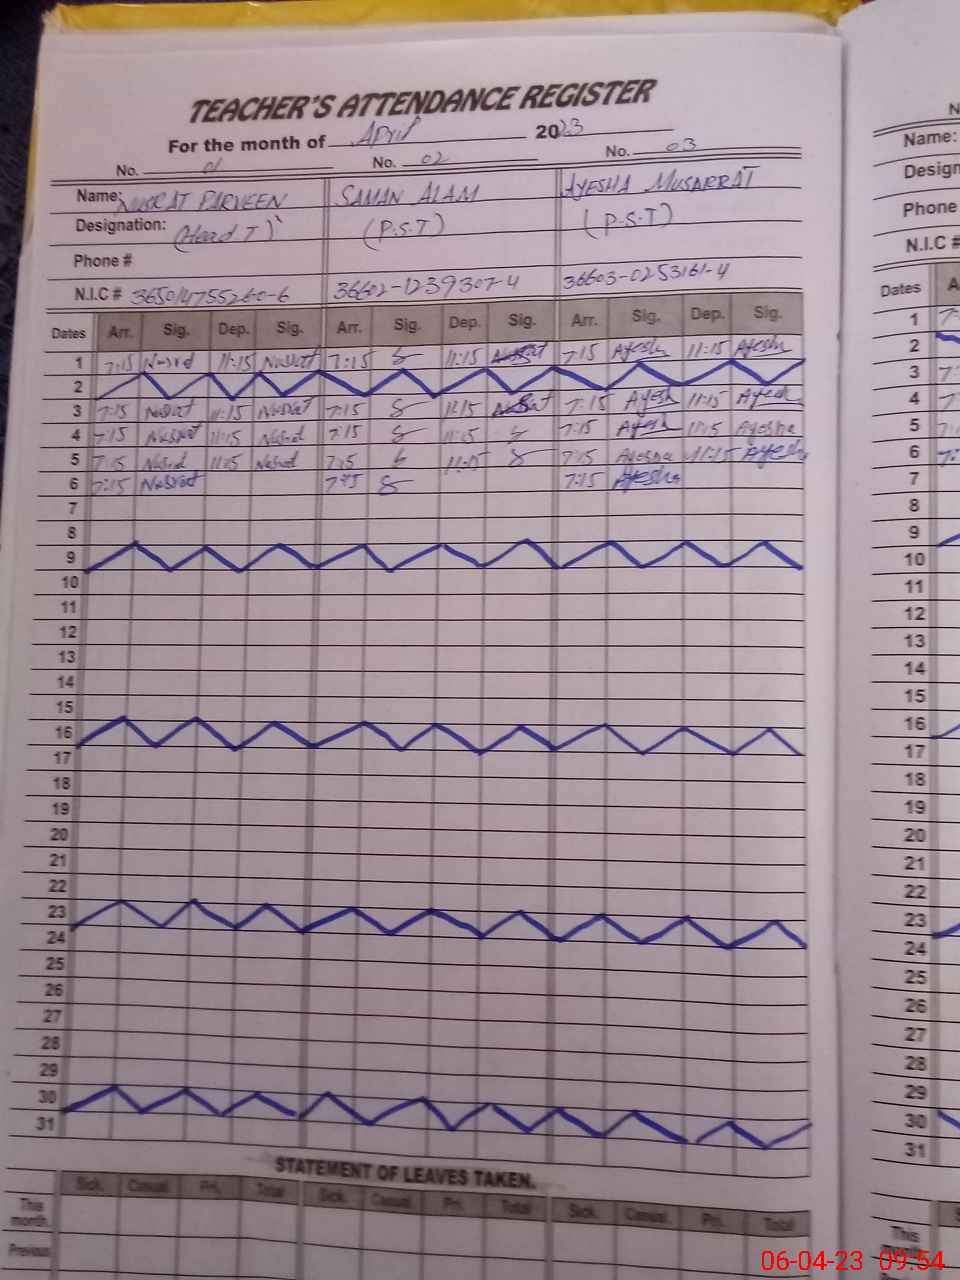 TEACHER'S ATTENDANCE REGISTER
For the month of April 2023
No. 01 No. 02 No. 03
Name: NUSRAT PARVEEN SAMAN ALAM AYESHA MUSARRAT
Designation: (Head T) (P.S.T) (P.S.T)
Phone #
N.I.C # 365014755260-6 36602-1239307-4 36603-0253161-4
Dates Arr. Sig. Dep. Sig. Arr. Sig. Dep. Sig. Arr. Sig. Dep. Sig.
1 7:15 Nusrat 11:15 Nusrat 7:15 11:15 7:15 Ayesha 11:15 Ayesha
2
3 7:15 Nusrat 11:15 Nusrat 7:15 11:15 7:15 Ayesha 11:15 Ayesha
4 7:15 Nusrat 11:15 Nusrat 7:15 11:15 7:15 Ayesha 11:15 Ayesha
5 7:15 Nusrat 11:15 Nusrat 7:15 11:15 7:15 Ayesha 11:15 Ayesha
6 7:15 Nusrat 7:15 7:15 Ayesha
7
8
9
10
11
12
13
14
15
16
17
18
19
20
21
22
23
24
25
26
27
28
29
30
31
STATEMENT OF LEAVES TAKEN.
Sick. Casual. Pri. Total Sick. Casual. Pri. Total Sick. Casual. Pri. Total
This month.
Previous
N
Name:
Design
Phone
N.I.C #
Dates A
1 7:
2
3 7:
4 7
5 7:
6 7:
7
8
9
10
11
12
13
14
15
16
17
18
19
20
21
22
23
24
25
26
27
28
29
30
31
S
This
06-04-23 09:54